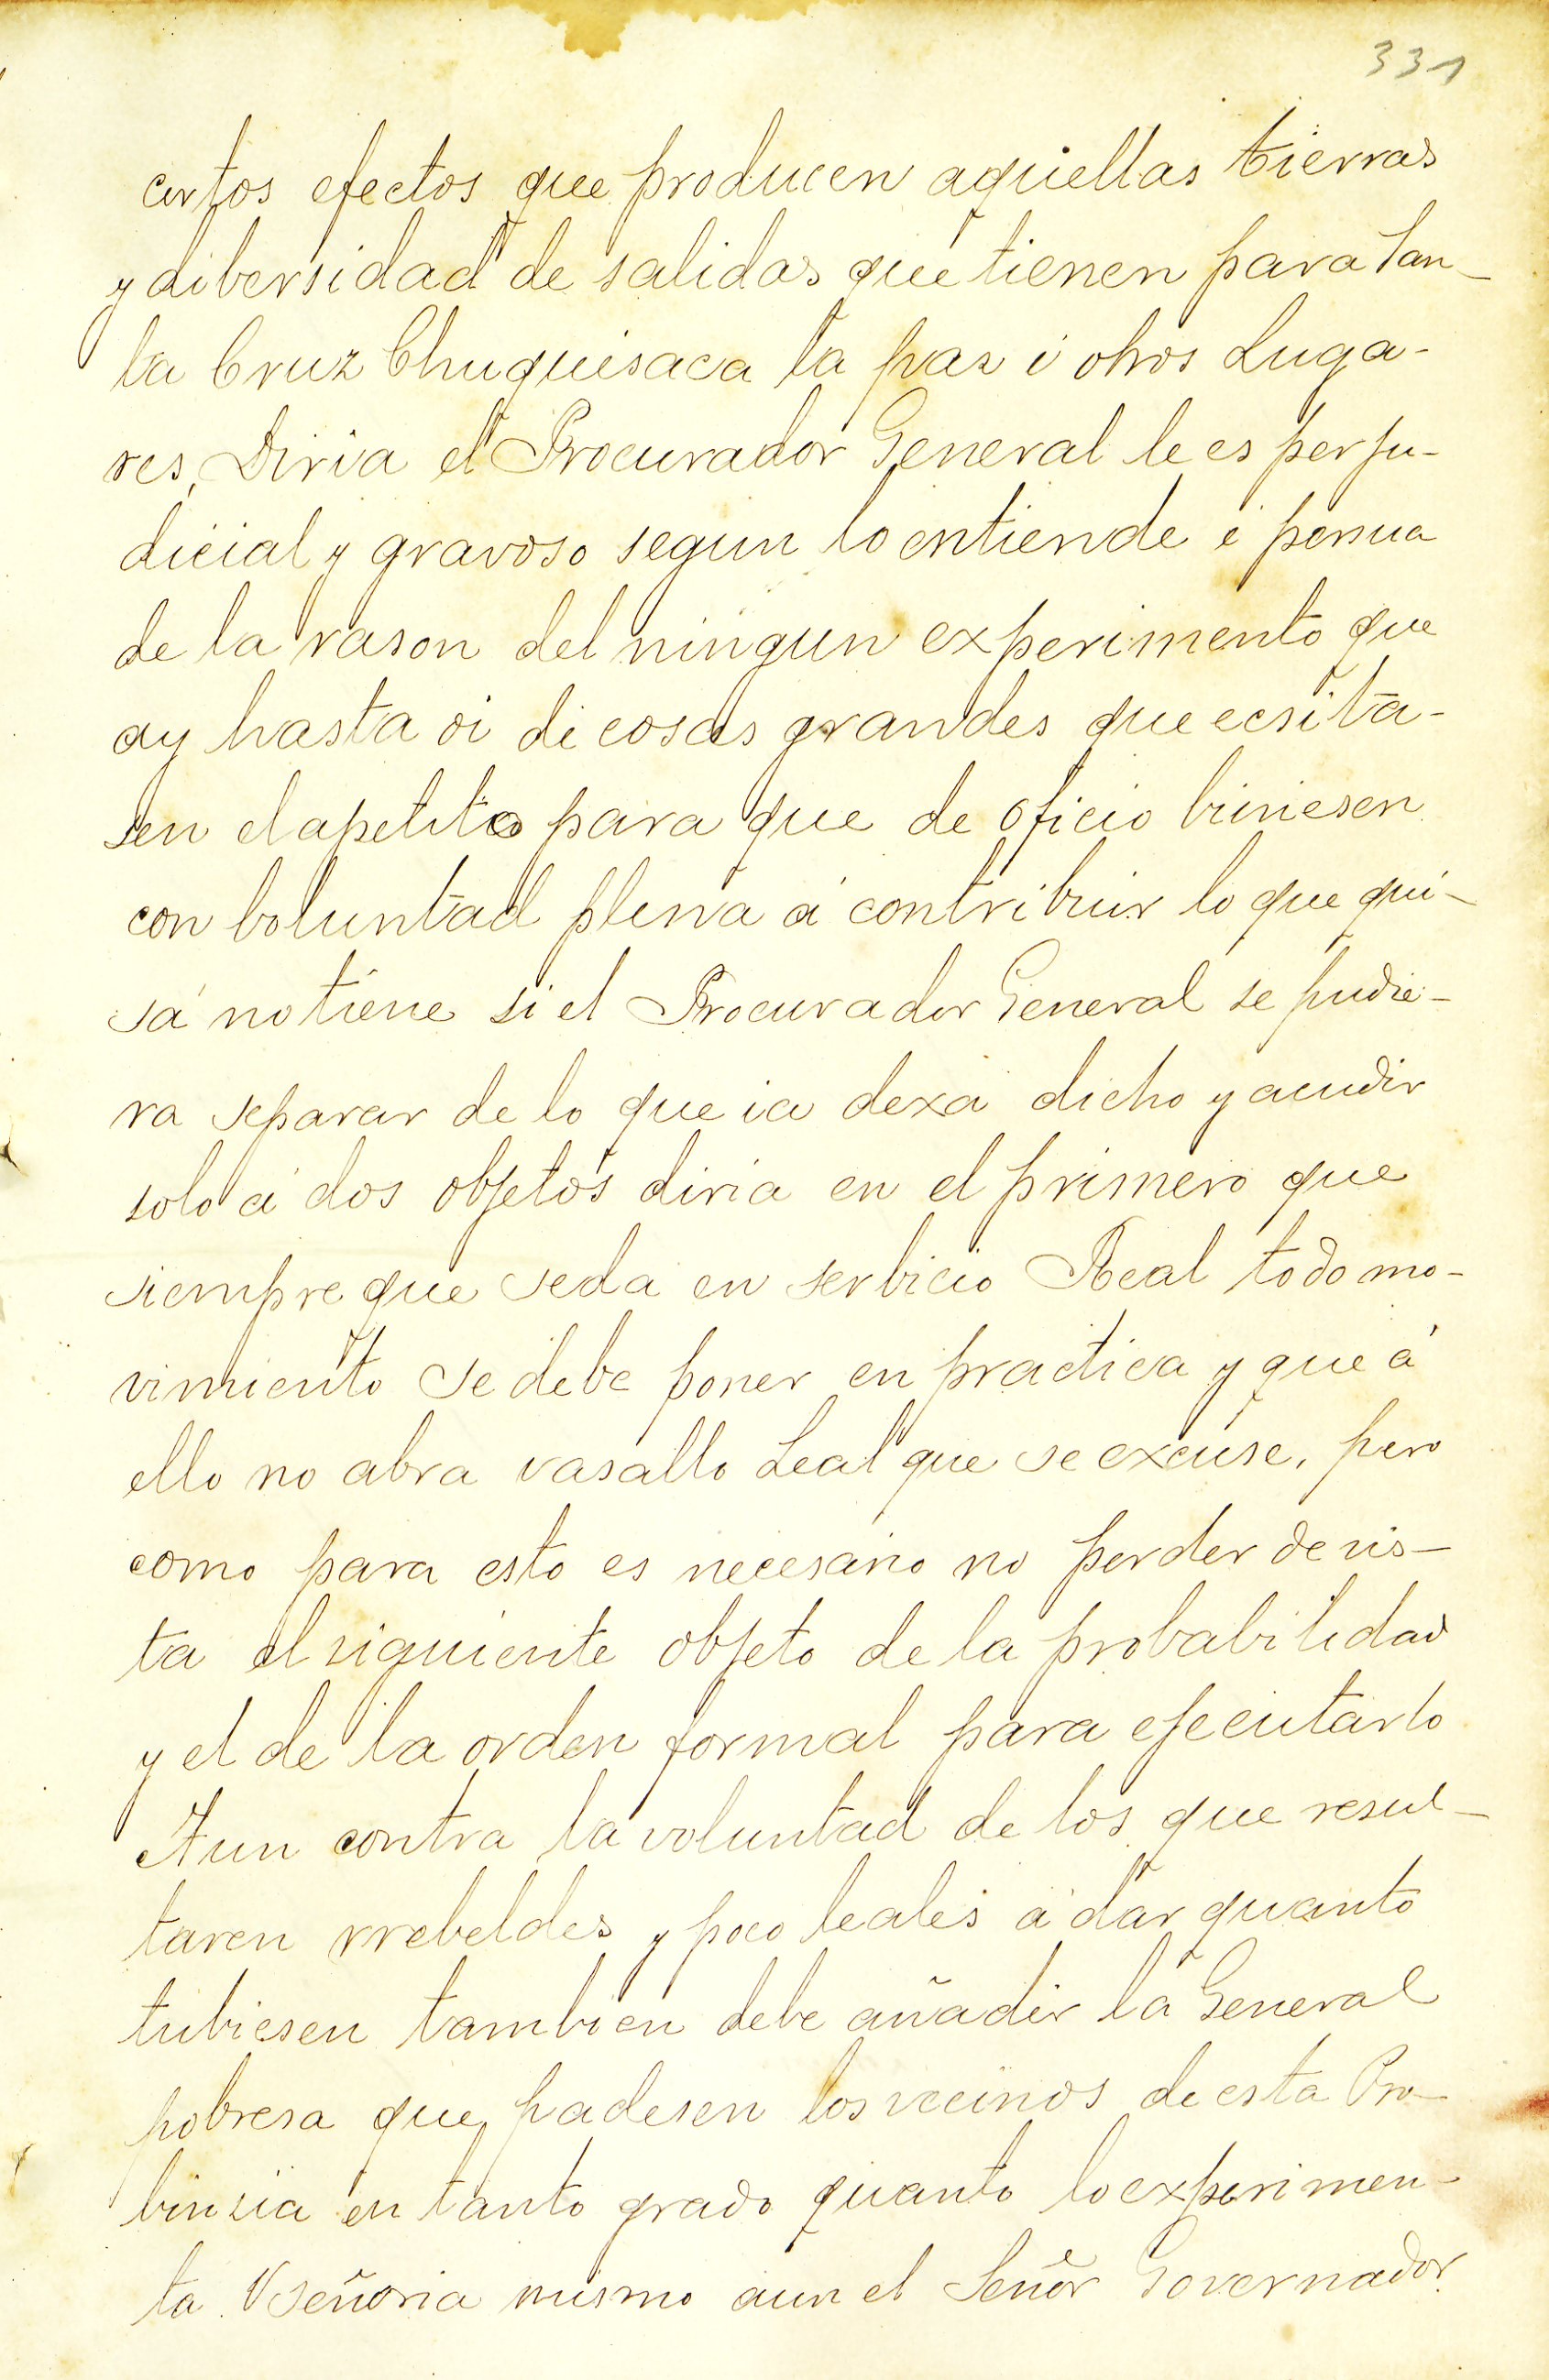 331
certos efectos que producen aquellas tierras
y dibersidad de salidas que tienen para San-
ta Cruz Chuquisaca la paz i otros Luga-
res, Diria el Procurador General le es perju-
dicial y gravoso segun lo entiende i persua
de la rason del ningun experimento que
ay hasta oi de cosas grandes que ecsita-
sen el apetito para que de oficio biniesen
con boluntad plena á contribuir lo que qui-
sá no tiene si el Procurador General se pudie-
ra separar de lo que ia dexa dicho y acudir
solo á dos objetos diria en el primero que
siempre que seda en serbicio Real todo mo-
vimiento se debe poner en practica y que á
ello no abra vasallo Leal que se excuse, pero
como para esto es necesario no perder de vis-
ta el siguiente objeto de la probabilidad
y el de la orden formal para ejecutarlo
Aun contra la voluntad de los que resul-
taren rrebeldes y poco leales á dar quanto
tubiesen tambien debe añadir la General
pobresa que padesen los vecinos de esta Pro-
binsia en tanto grado quanto lo experimen-
ta Vseñoria mismo aun el Señor Governador